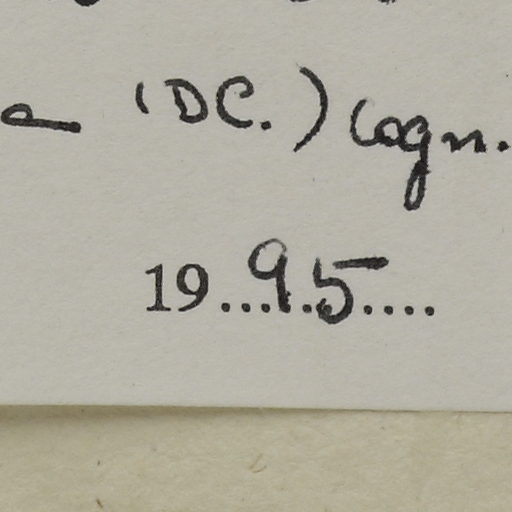 a (DC.) Cogn.
1995